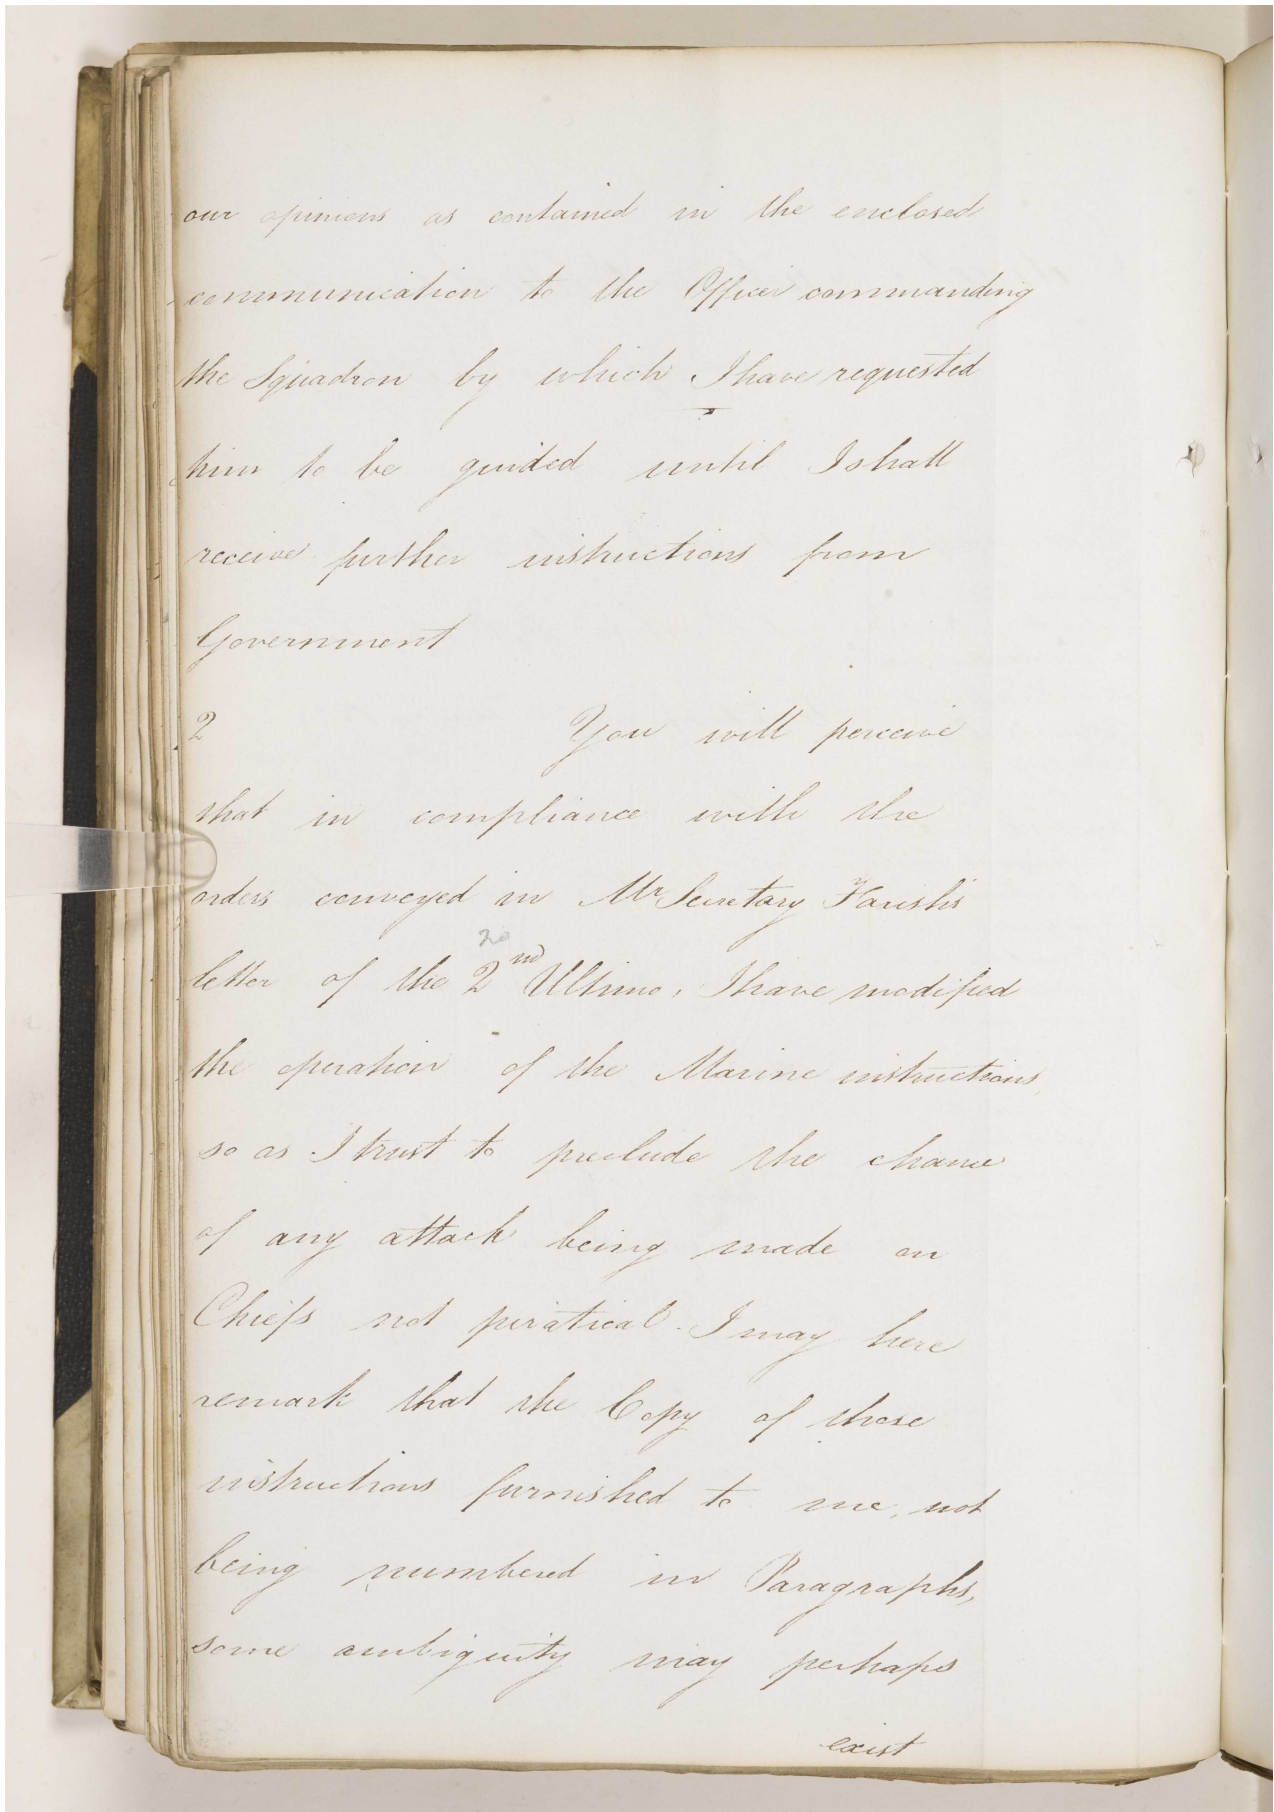 our opinions as contained in the enclosed
communication to the Officer commanding
the Squadron by which I have requested
him to be guided until I shall
receive further instructions from
Government
2 You will perceive
that in compliance with the
orders conveyed in Mr Secretary Farish's
letter of the 2nd Ultimo, I have modified
the operation of the Marine instructions,
so as I trust to preclude the chance
of any attack being made on
Chiefs not piratical. I may here
remark that the Copy of those
instructions furnished to me, not
being numbered in Paragraphs,
some ambiguity may perhaps
exist